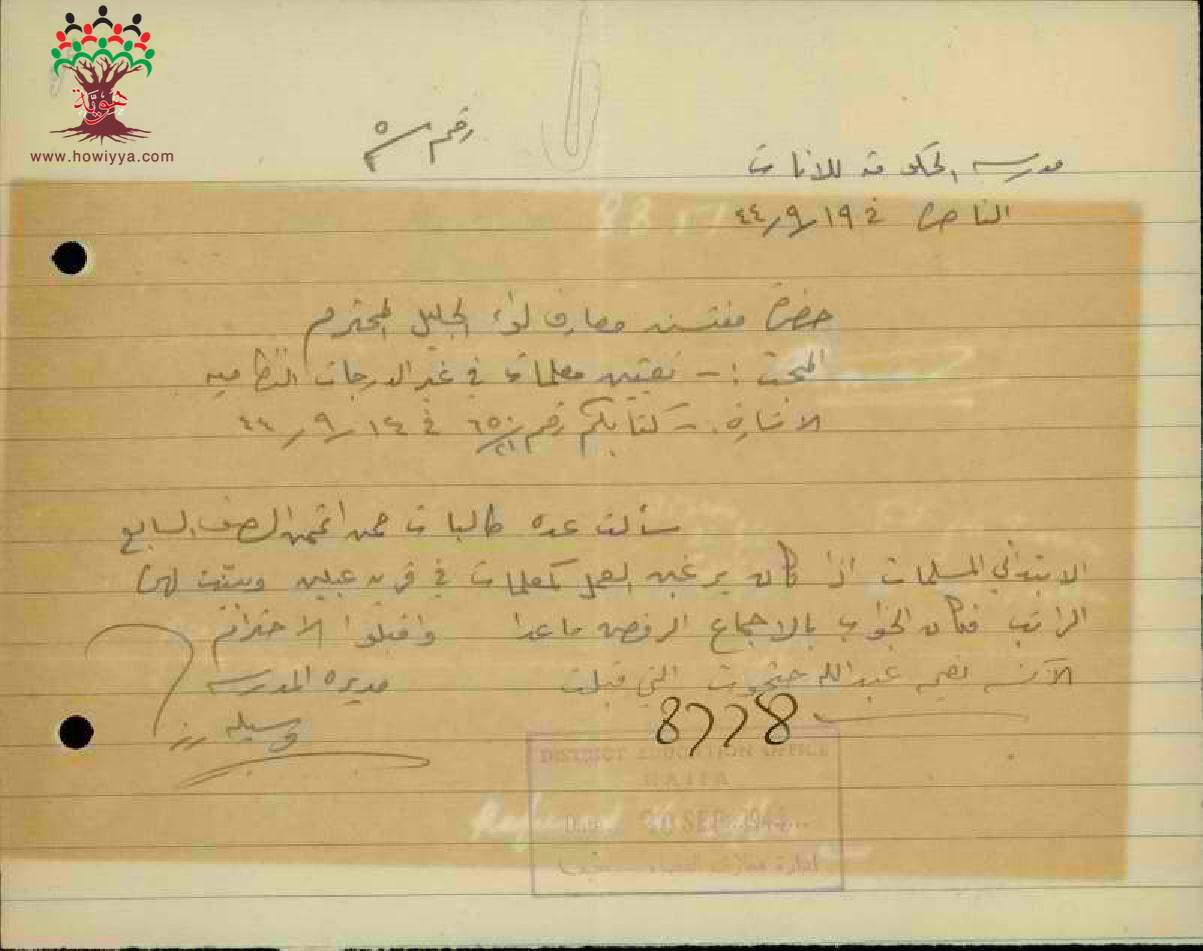 هوية
www.howiyya.com
رقم ٥
مدرسة الحكومة للاناث
الناصرة في ١٩/٩/٤٤
حضرة مفتش معارف لواء الجليل المحترم
المبحث :- تعيين معلمات في غير الدرجات النظامية
الاشارة :- كتابكم رقم في ١٤/٩/٤٤
سألت عدة طالبات ممن اتممن الصف السابع
الابتدائي المسلمات اذا كان يرغبن العمل كمعلمات في قرية عبلين وبينت لهن
الراتب فكان الجواب بالاجماع الرفض ماعدا
الآنسة عبدالله التي قبلت
واقبلوا الاحترام
مديرة المدرسة
وسيله
8778
DISTRICT EDUCATION OFFICE
HAIFA
Date 20 SEP 1944